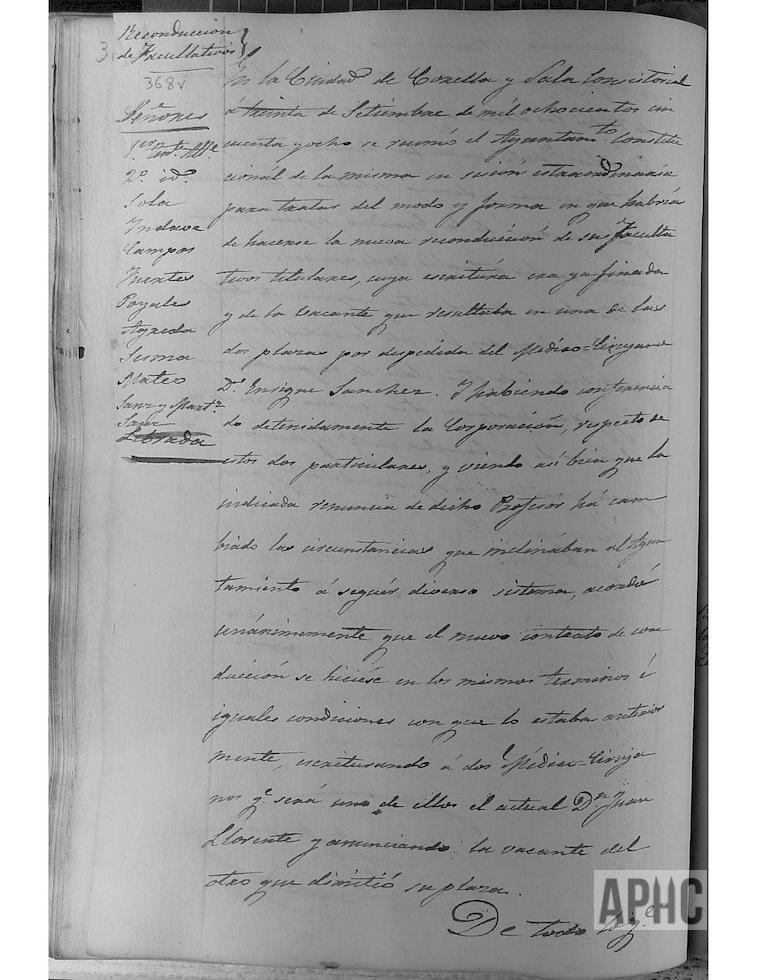 Reconduccion
de Facultativos
3
368v
Señores
1er. tente. Alle
2º. id.
Sola
Yndave
Campos
Funtes
Poyales
Agreda
Sesma
Mateo
Sanz y Mart.z
Sanz
Librada
En la Ciudad de Corella y Sala Consistorial
a treinta de Setiembre de mil ochocientos cin
cuenta y ocho se reunió el Ayuntamto. Constitu
cional de la misma en sesión estraordinaria
para tratar del modo y forma en que habria
de hacerse la nueva reconducción de sus Faculta
tivos titulares, cuya escritúra era ya finada
y de la vacante que resultaba en una de las
dos plazas por despedida del Médico-Cirujano
Dn. Enrique Sanchez. Y habiendo conferencia
do detenidamente la Corporación, respecto de
estos dos particulares, y viendo asi bien que la
indicada renuncia de dicho Profesór há cam
biado las circunstancias que inclinában al Ayun
tamiento á seguir diverso sistema, acordó
unánimemente que el nuevo contrato de con
ducción se hiciése en los mismos terminos é
iguales condiciones con que lo estaba anterior
mente, escriturando á dos Médico-Ciruja
nos qe. será uno de ellos el actual Dn. Juan
Llorente y anunciando la vacante del
otro que dimitió su plaza.
De todo lo qe.
APHC